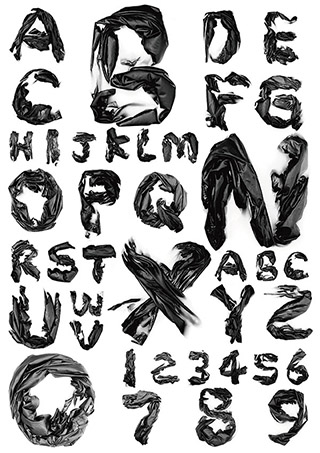 A B D E
C F G
H I J K L M N
O P Q
R S T X A B C
U W Y Z
V
0 1 2 3 4 5 6
7 8 9